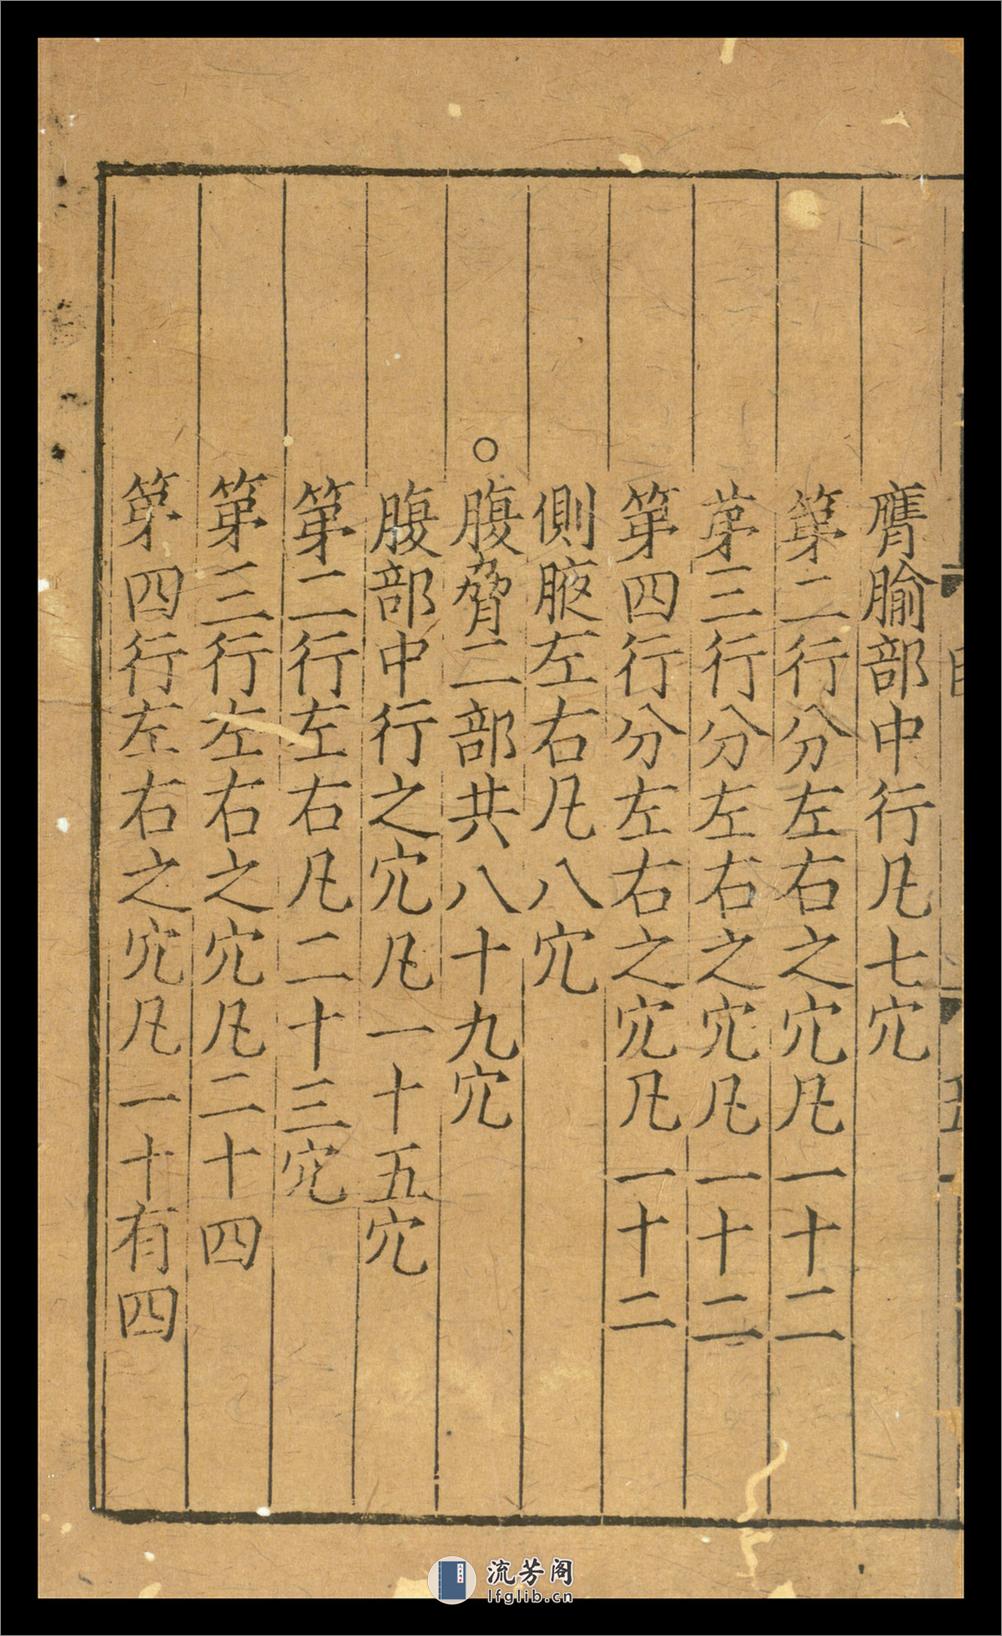 膺腧部中行凡七穴
第二行分左右之穴凡一十二
第三行分左右之穴凡一十二
第四行分左右之穴凡一十二
側腋左右凡八穴
○腹脅二部共八十九穴
腹部中行之穴凡一十五穴
第二行左右凡二十三穴
第三行左右之穴凡二十四
第四行左右之穴凡一十有四
流芳阁
lfglib.cn